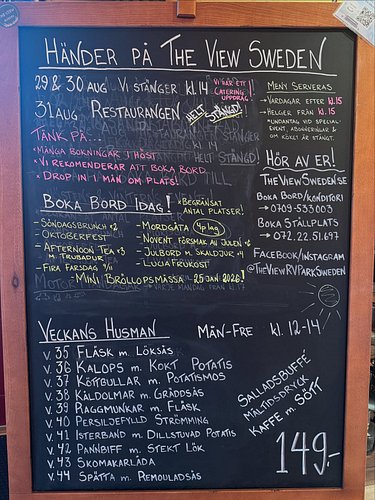 HÄNDER PÅ THE VIEW SWEDEN
29 & 30 AUG VI STÄNGER kl. 14
VI HAR ETT!
CATERING
UPPDRAG
31 AUG RESTAURANGEN HELT STÄNGD!
TÄNK PÅ...
• MÅNGA BOKNINGAR I HÖST
• VI REKOMENDERAR ATT BOKA BORD
• DROP IN I MÅN OM PLATS!
BOKA BORD IDAG!
* BEGRÄNSAT
ANTAL PLATSER!
- SÖNDAGSBRUNCH *2
- OKTOBERFEST
- AFTERNOON TEA *3
M. TRUBADUR
- FIRA FARSDAG 9/11
- MORDGÅTA 4 p lag
- NOVENT FÖRSMAK AV JULEN *6
- JULBORD M. SKALDJUR *4
- LUCIAFRUKOST
- MINI BRÖLLOPSMÄSSA 25 JAN 2026!
MENY SERVERAS
→ VARDAGAR EFTER kl. 15
→ HELGER FRÅN kl. 15
* UNDANTAG VID SPECIAL-
EVENT, ABONNERINGAR &
OM KÖKET ÄR STÄNGT.
HÖR AV ER!
THEVIEWSWEDEN.SE
BOKA BORD/KONDITORI
→ 0709-533003
BOKA STÄLLPLATS
→ 072.22.51.697
FACEBOOK/INSTAGRAM
@THEVIEWRVPARKSWEDEN
VECKANS HUSMAN MÅN-FRE kl. 12-14
v. 35 FLÄSK M. LÖKSÅS
v. 36 KALOPS M. KOKT POTATIS
v. 37 KÖTTBULLAR M. POTATISMOS
v. 38 KÅLDOLMAR M. GRÄDDSÅS
v. 39 RAGGMUNKAR M. FLÄSK
v. 40 PERSILJEFYLLD STRÖMMING
v. 41 ISTERBAND M. DILLSTUVAD POTATIS
v. 42 PANNBIFF M. STEKT LÖK
v. 43 SKOMAKARLÅDA
v. 44 SPÄTTA M. REMOULADSÅS
SALLADSBUFFÉ
MÅLTIDSDRYCK
KAFFE M. SÖTT
149:-